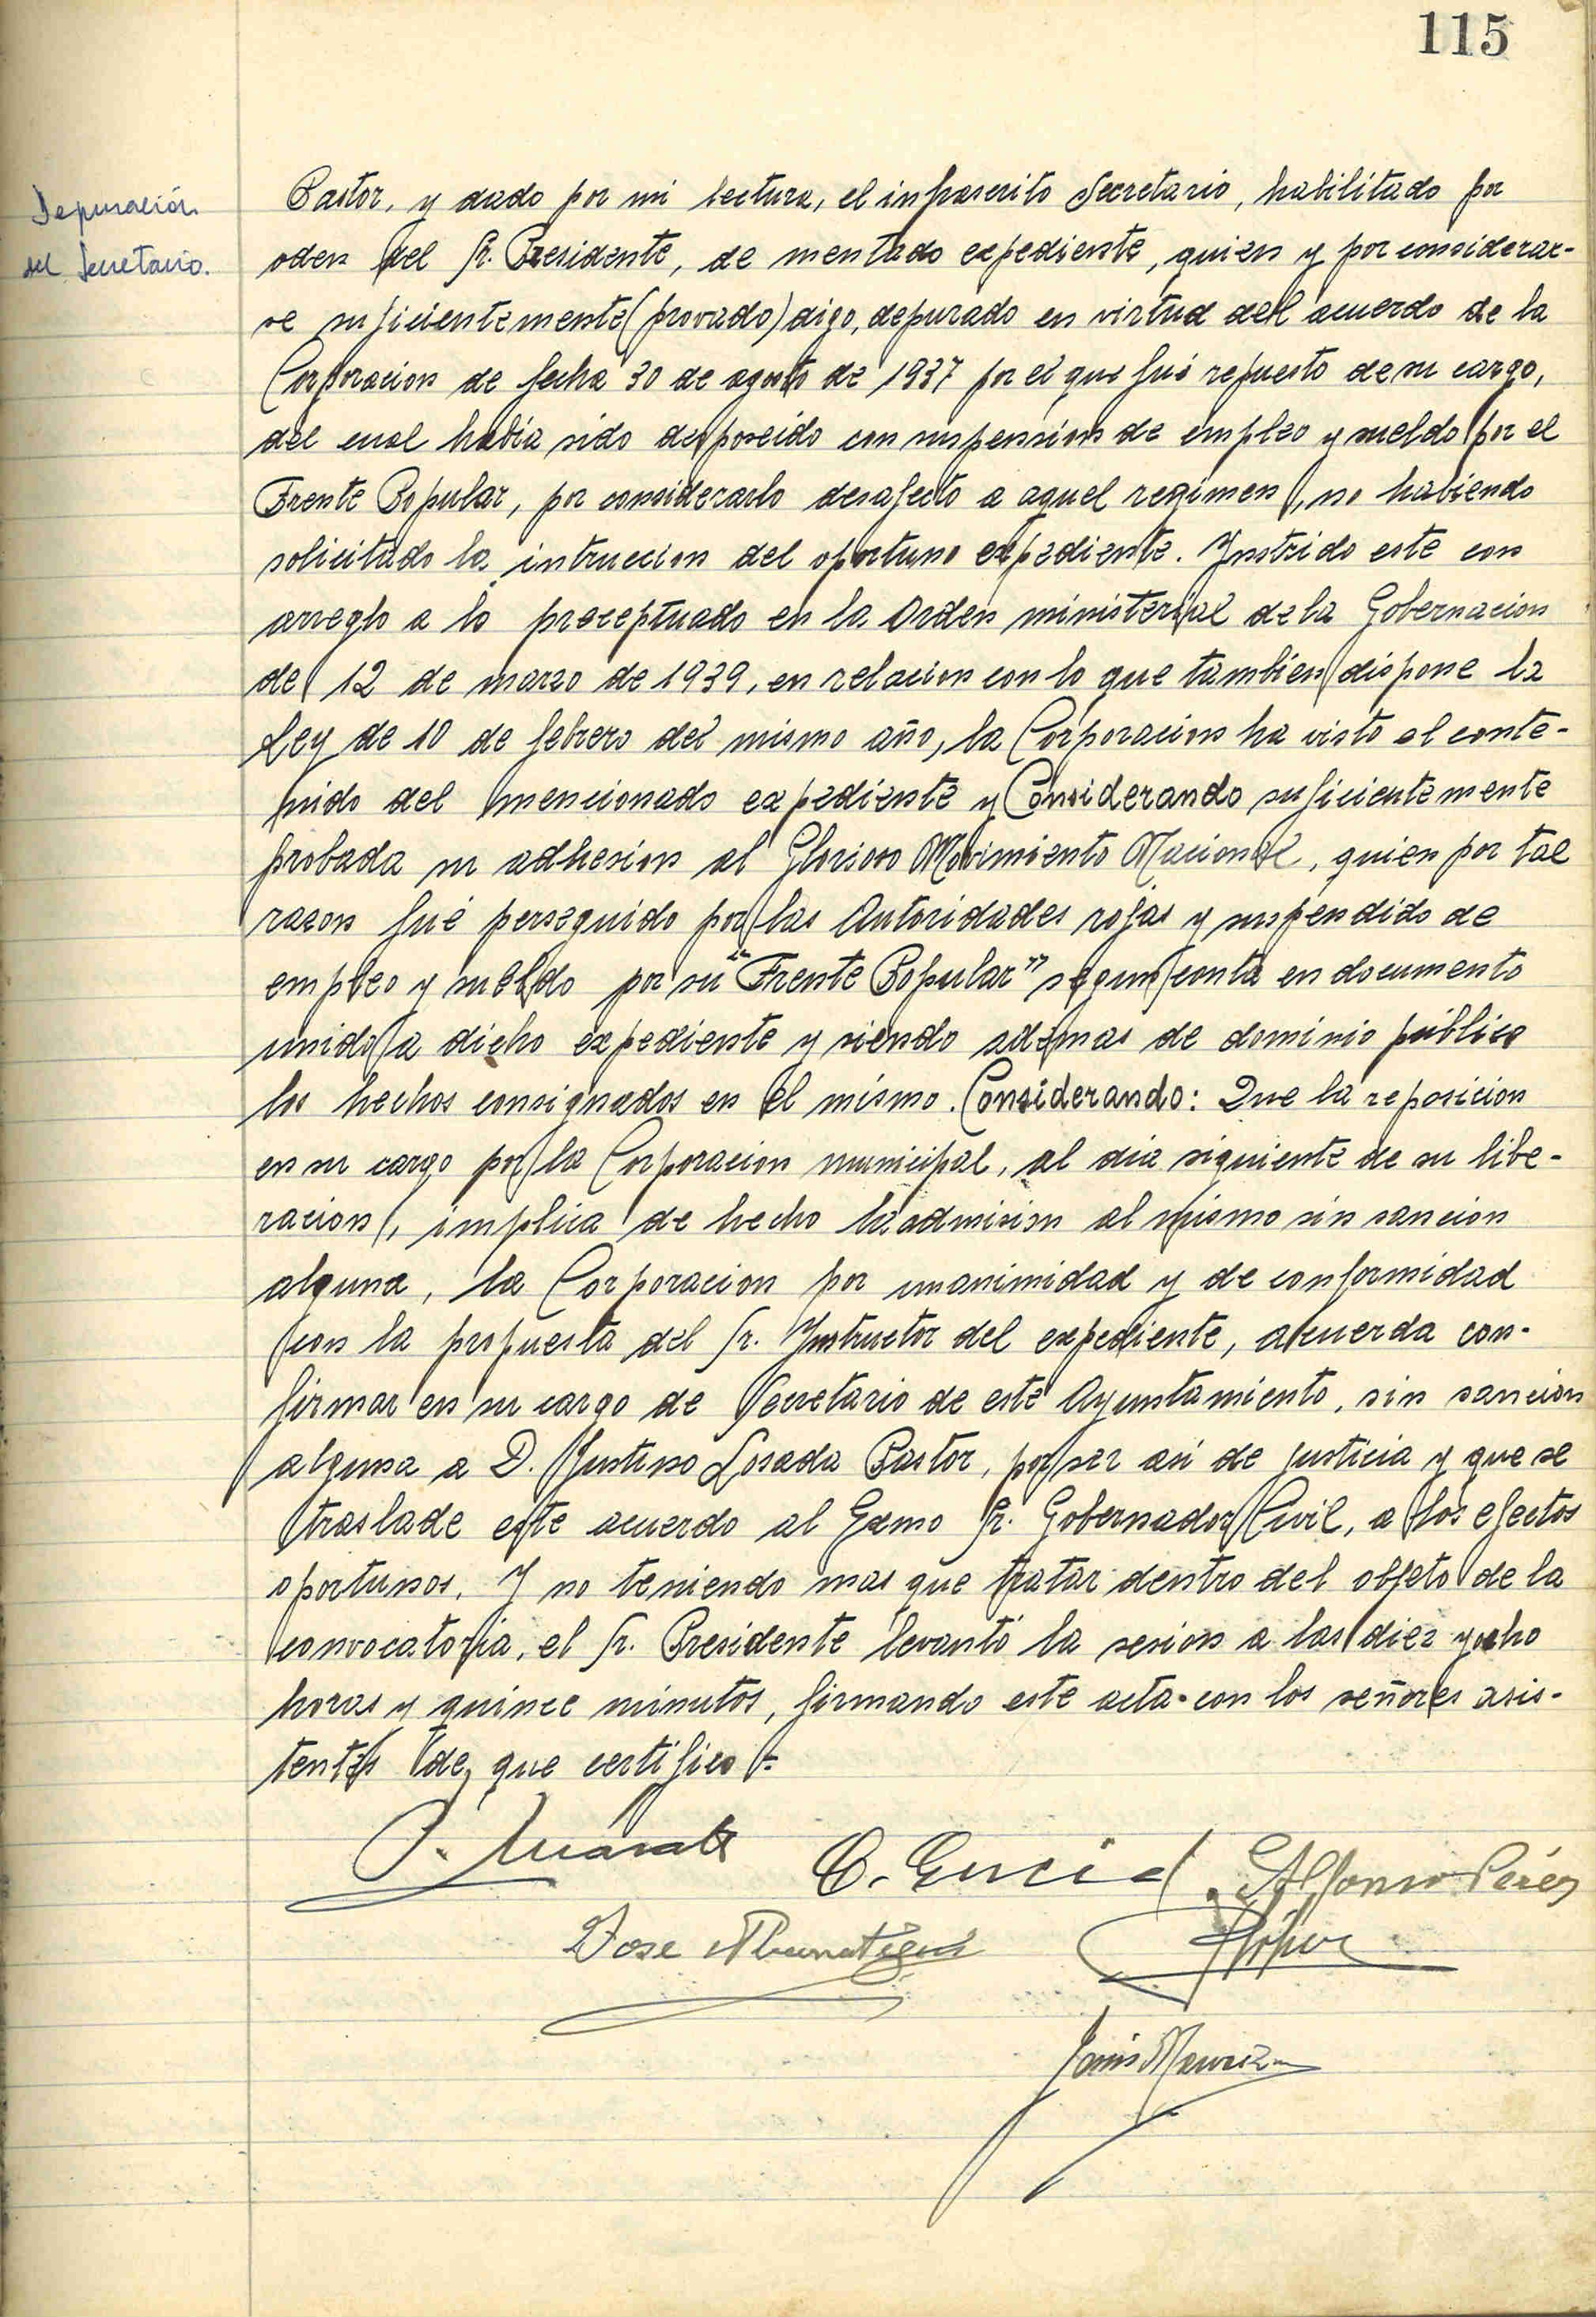 115
Depuración
del Secretario.
Pastor, y dado por mi lectura, el infrascrito Secretario, habilitado por
oden del Sr. Presidente, de mentado expediente, quien y por considerar-
se suficientemente (provado) digo, depurado en virtud del acuerdo de la
Corporacion de fecha 30 de agosto de 1937 por el que fué repuesto de su cargo,
del cual habia sido desposeido con suspension de empleo y sueldo por el
Frente Popular, por considerarlo desafecto a aquel regimen, no habiendo
solicitado la intruccion del oportuno expediente. Instrido este con
arreglo a lo preceptuado en la Orden ministerial de la Gobernacion
de 12 de marzo de 1939, en relacion con lo que tambien dispone la
Ley de 10 de febrero del mismo año, la Corporacion ha visto el conte-
nido del mencionado expediente y Considerando suficientemente
probada su adhesion al Glorioso Movimiento Nacional, quien por tal
razon fué perseguido por las Autoridades rojas y suspendido de
empleo y sueldo por su "Frente Popular" segun conta en documento
unido a dicho expediente y siendo ademas de dominio público
los hechos consignados en el mismo. Considerando: Que la reposicion
en su cargo por la Corporacion municipal, al dia siguiente de su libe-
racion, implica de hecho la admision al mismo sin sancion
alguna, la Corporacion por unanimidad y de conformidad
con la propuesta del Sr. Instructor del expediente, acuerda con-
firmar en su cargo de Secretario de este Ayuntamiento, sin sancion
alguna a D. Justino Losada Pastor, por ser asi de justicia y que se
traslade este acuerdo al Exmo Sr. Gobernador Civil, a los efectos
oportunos. Y no teniendo mas que tratar dentro del objeto de la
convocatoria, el Sr. Presidente levantó la sesion a las diez y ocho
horas y quince minutos, firmando este acta con los señores asis-
tentes de que certifico.=
C. Garcia Alfonso Pérez
Jose